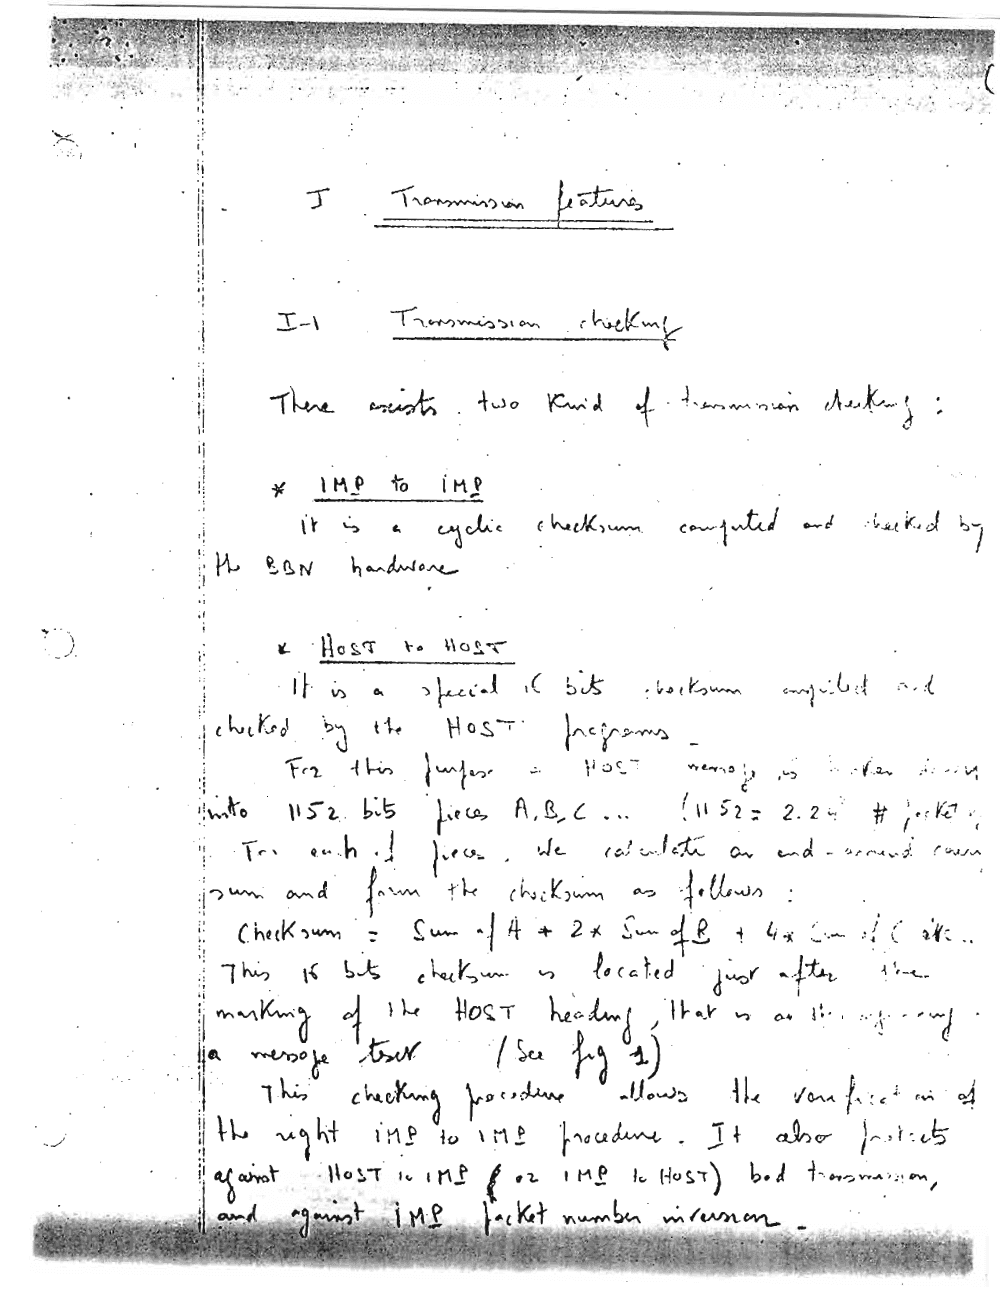 I Transmission features
I-1 Transmission checking
There exists two kind of transmission checking :
* IMP to IMP
it is a cyclic checksum computed and checked by
the BBN hardware
* HOST to HOST
It is a special 16 bits checksum computed and
checked by the HOST programs -
For this purpose a HOST message is broken down
into 1152 bits pieces A, B, C ... (1152 =
For each of pieces, we calculate an end-around
sum and form the checksum as follows :
Checksum = Sum of A + 2 x Sum of B + 4 x Sum of C etc..
This 16 bits checksum is located just after the
marking of the HOST heading, that is at the
a message text (See fig 1)
This checking procedure allows the verification of
the right IMP to IMP procedure. It also protects
against HOST to IMP (or IMP to HOST) bad transmission,
and against IMP packet number inversion -